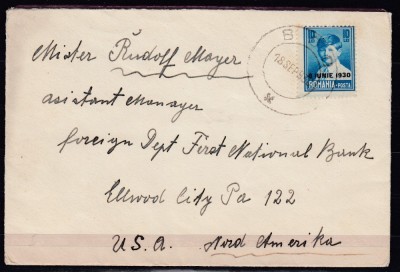 Mister Rudolf Mayer
asistant Manager
foreign Dept First National Bank
Ellwood City Pa 122
U.S.A. Nord Amerika
10 LEI 10 LEI
8 IUNIE 1930
ROMANIA·POSTA